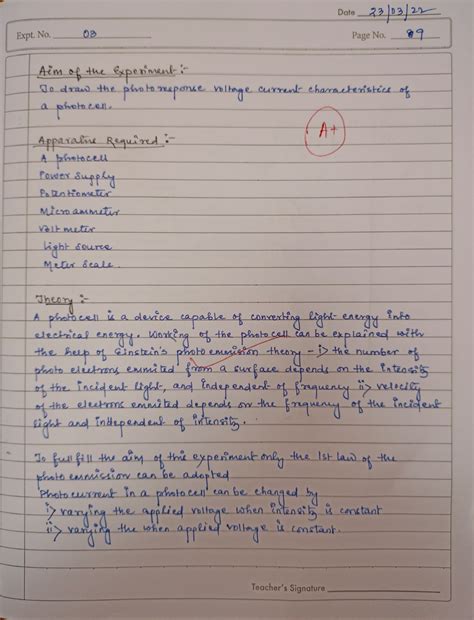 Date 23/03/22
Expt. No. 03
Page No. 09
Aim of the Experiment :-
To draw the photoresponse voltage current characteristics of
a photocell.
A+
Apparatus Required :-
A photocell
Power Supply
Potentiometer
Microammeter
Voltmeter
Light source
Meter Scale.
Theory :-
A photocell is a device capable of converting light energy into
electrical energy. Working of the photocell can be explained with
the help of Einstein's photoemmision theory - i> the number of
photo electrons emmited from a surface depends on the intensity
of the incident light, and independent of frequency ii> velocity
of the electrons emmited depends on the frequency of the incident
light and independent of intensity.
To fullfill the aim of this experiment only the 1st law of the
photo emmission can be adopted
Photocurrent in a photocell can be changed by
i> varying the applied voltage when intensity is constant
ii> varying the when applied voltage is constant.
Teacher's Signature